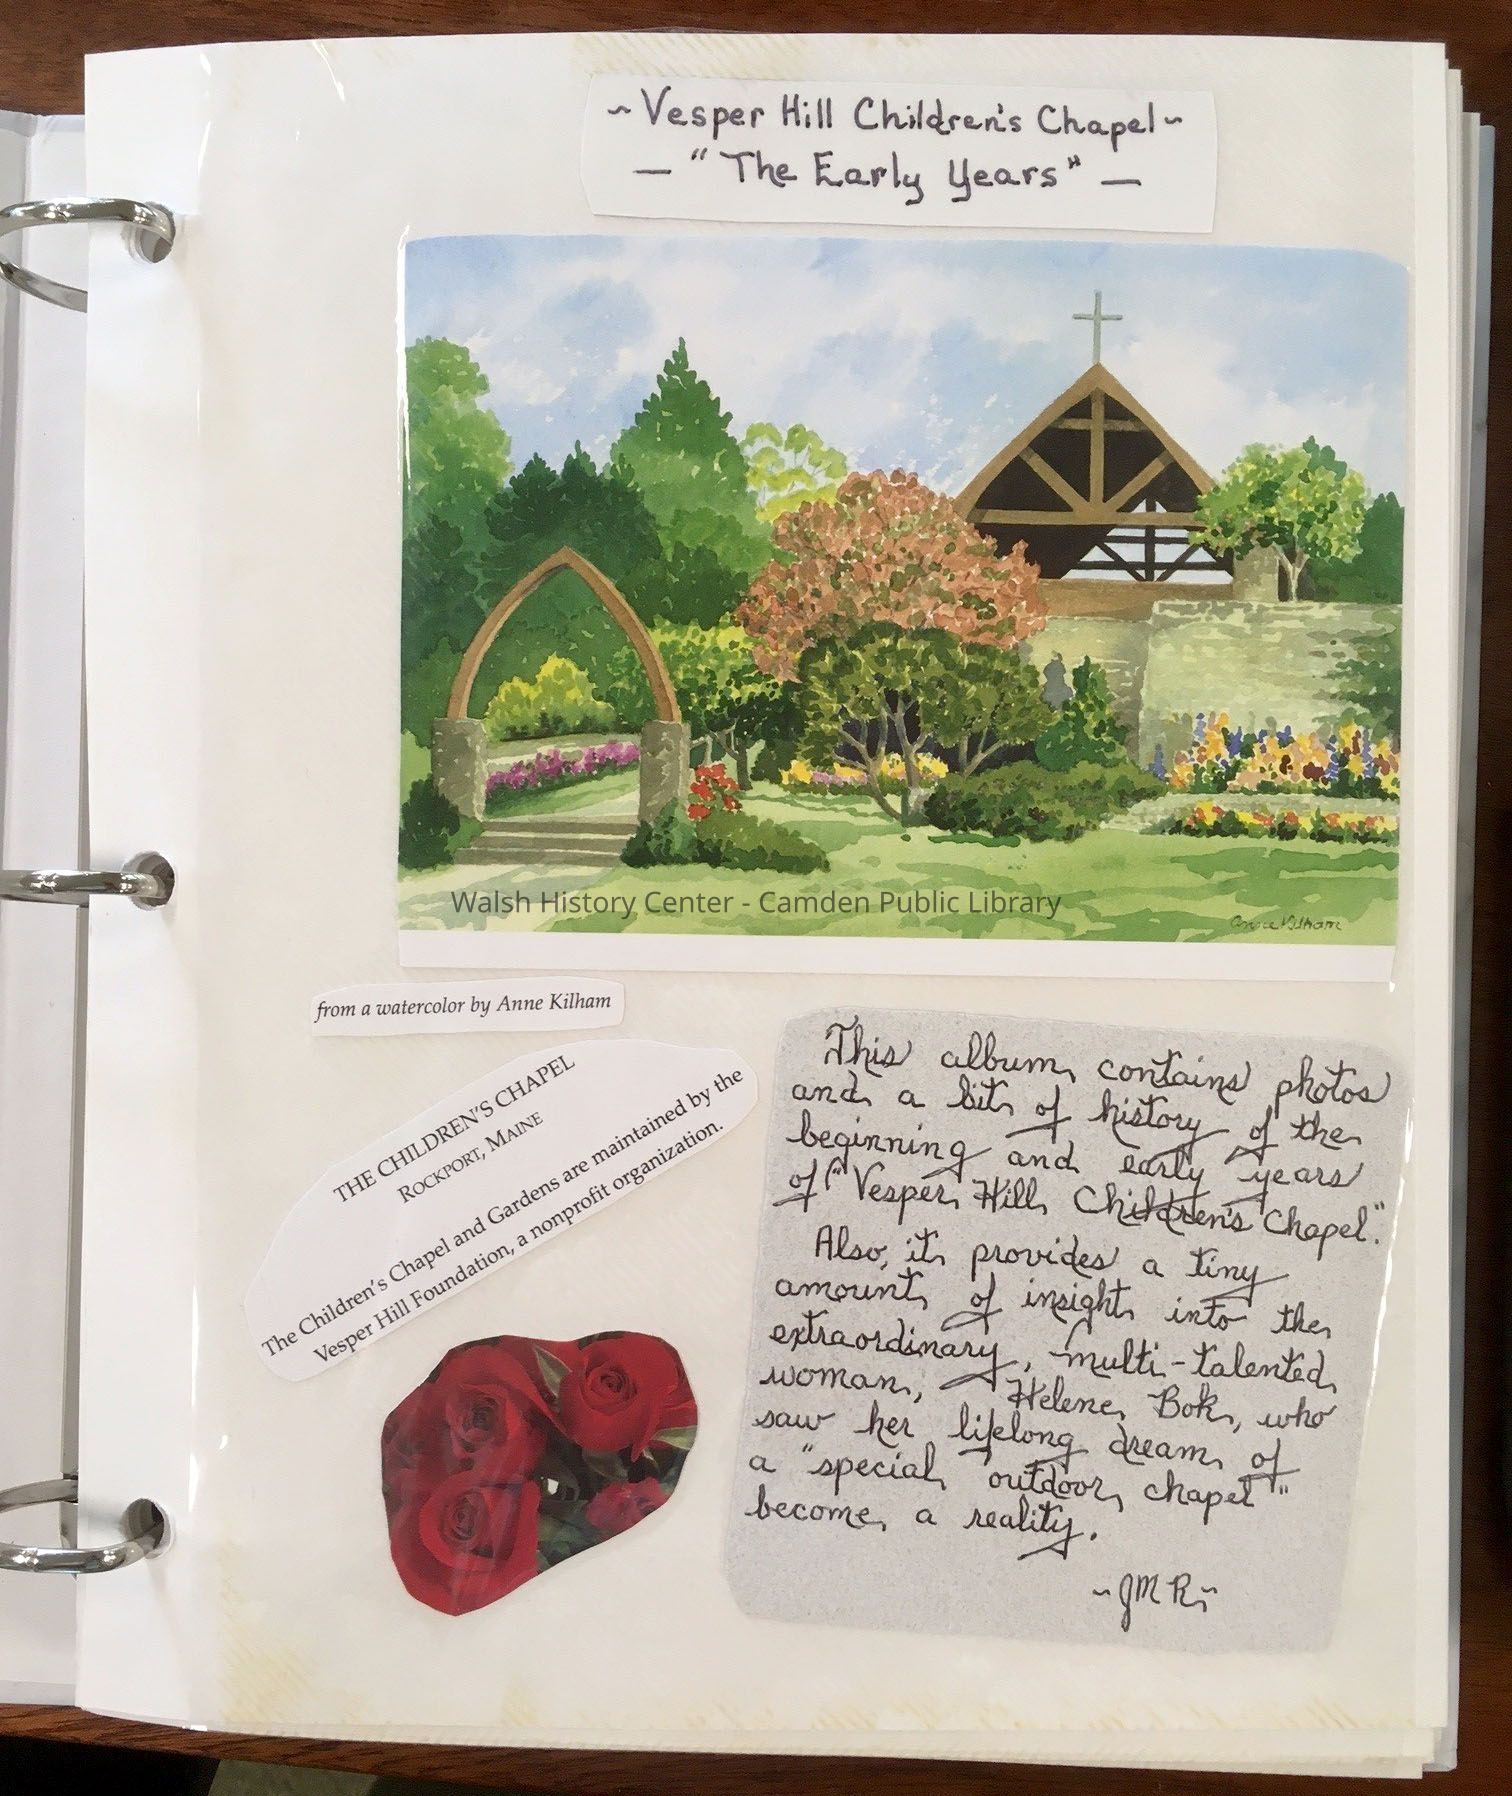 ~ Vesper Hill Children's Chapel ~
— "The Early Years" —
Walsh History Center - Camden Public Library
Anne Kilham
from a watercolor by Anne Kilham
THE CHILDREN'S CHAPEL
ROCKPORT, MAINE
The Children's Chapel and Gardens are maintained by the
Vesper Hill Foundation, a nonprofit organization.
This album contains photos
and a bit of history of the
beginning and early years
of "Vesper Hill Children's Chapel".
Also, it provides a tiny
amount of insight into the
extraordinary, multi-talented
woman, Helene Bok, who
saw her lifelong dream of
a "special outdoor chapel"
become a reality.
~JMR~